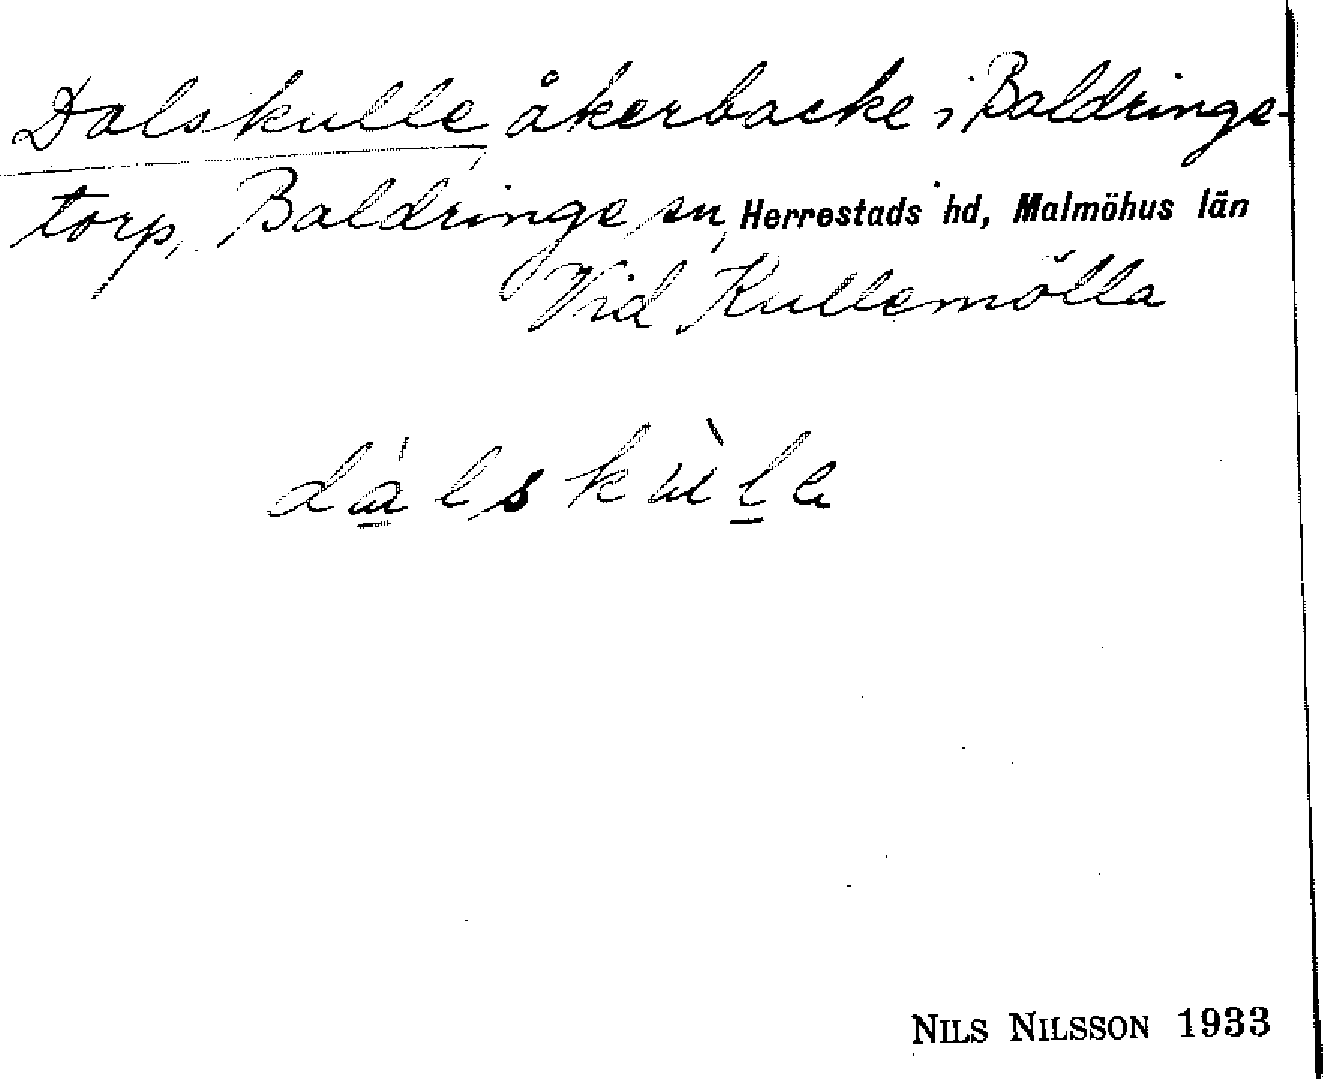 Dalskulle åkerbacke i Baldringe-
torp, Baldringe sn, Herrestads hd, Malmöhus län
Vid Kullemölla
dálskùla
NILS NILSSON 1933